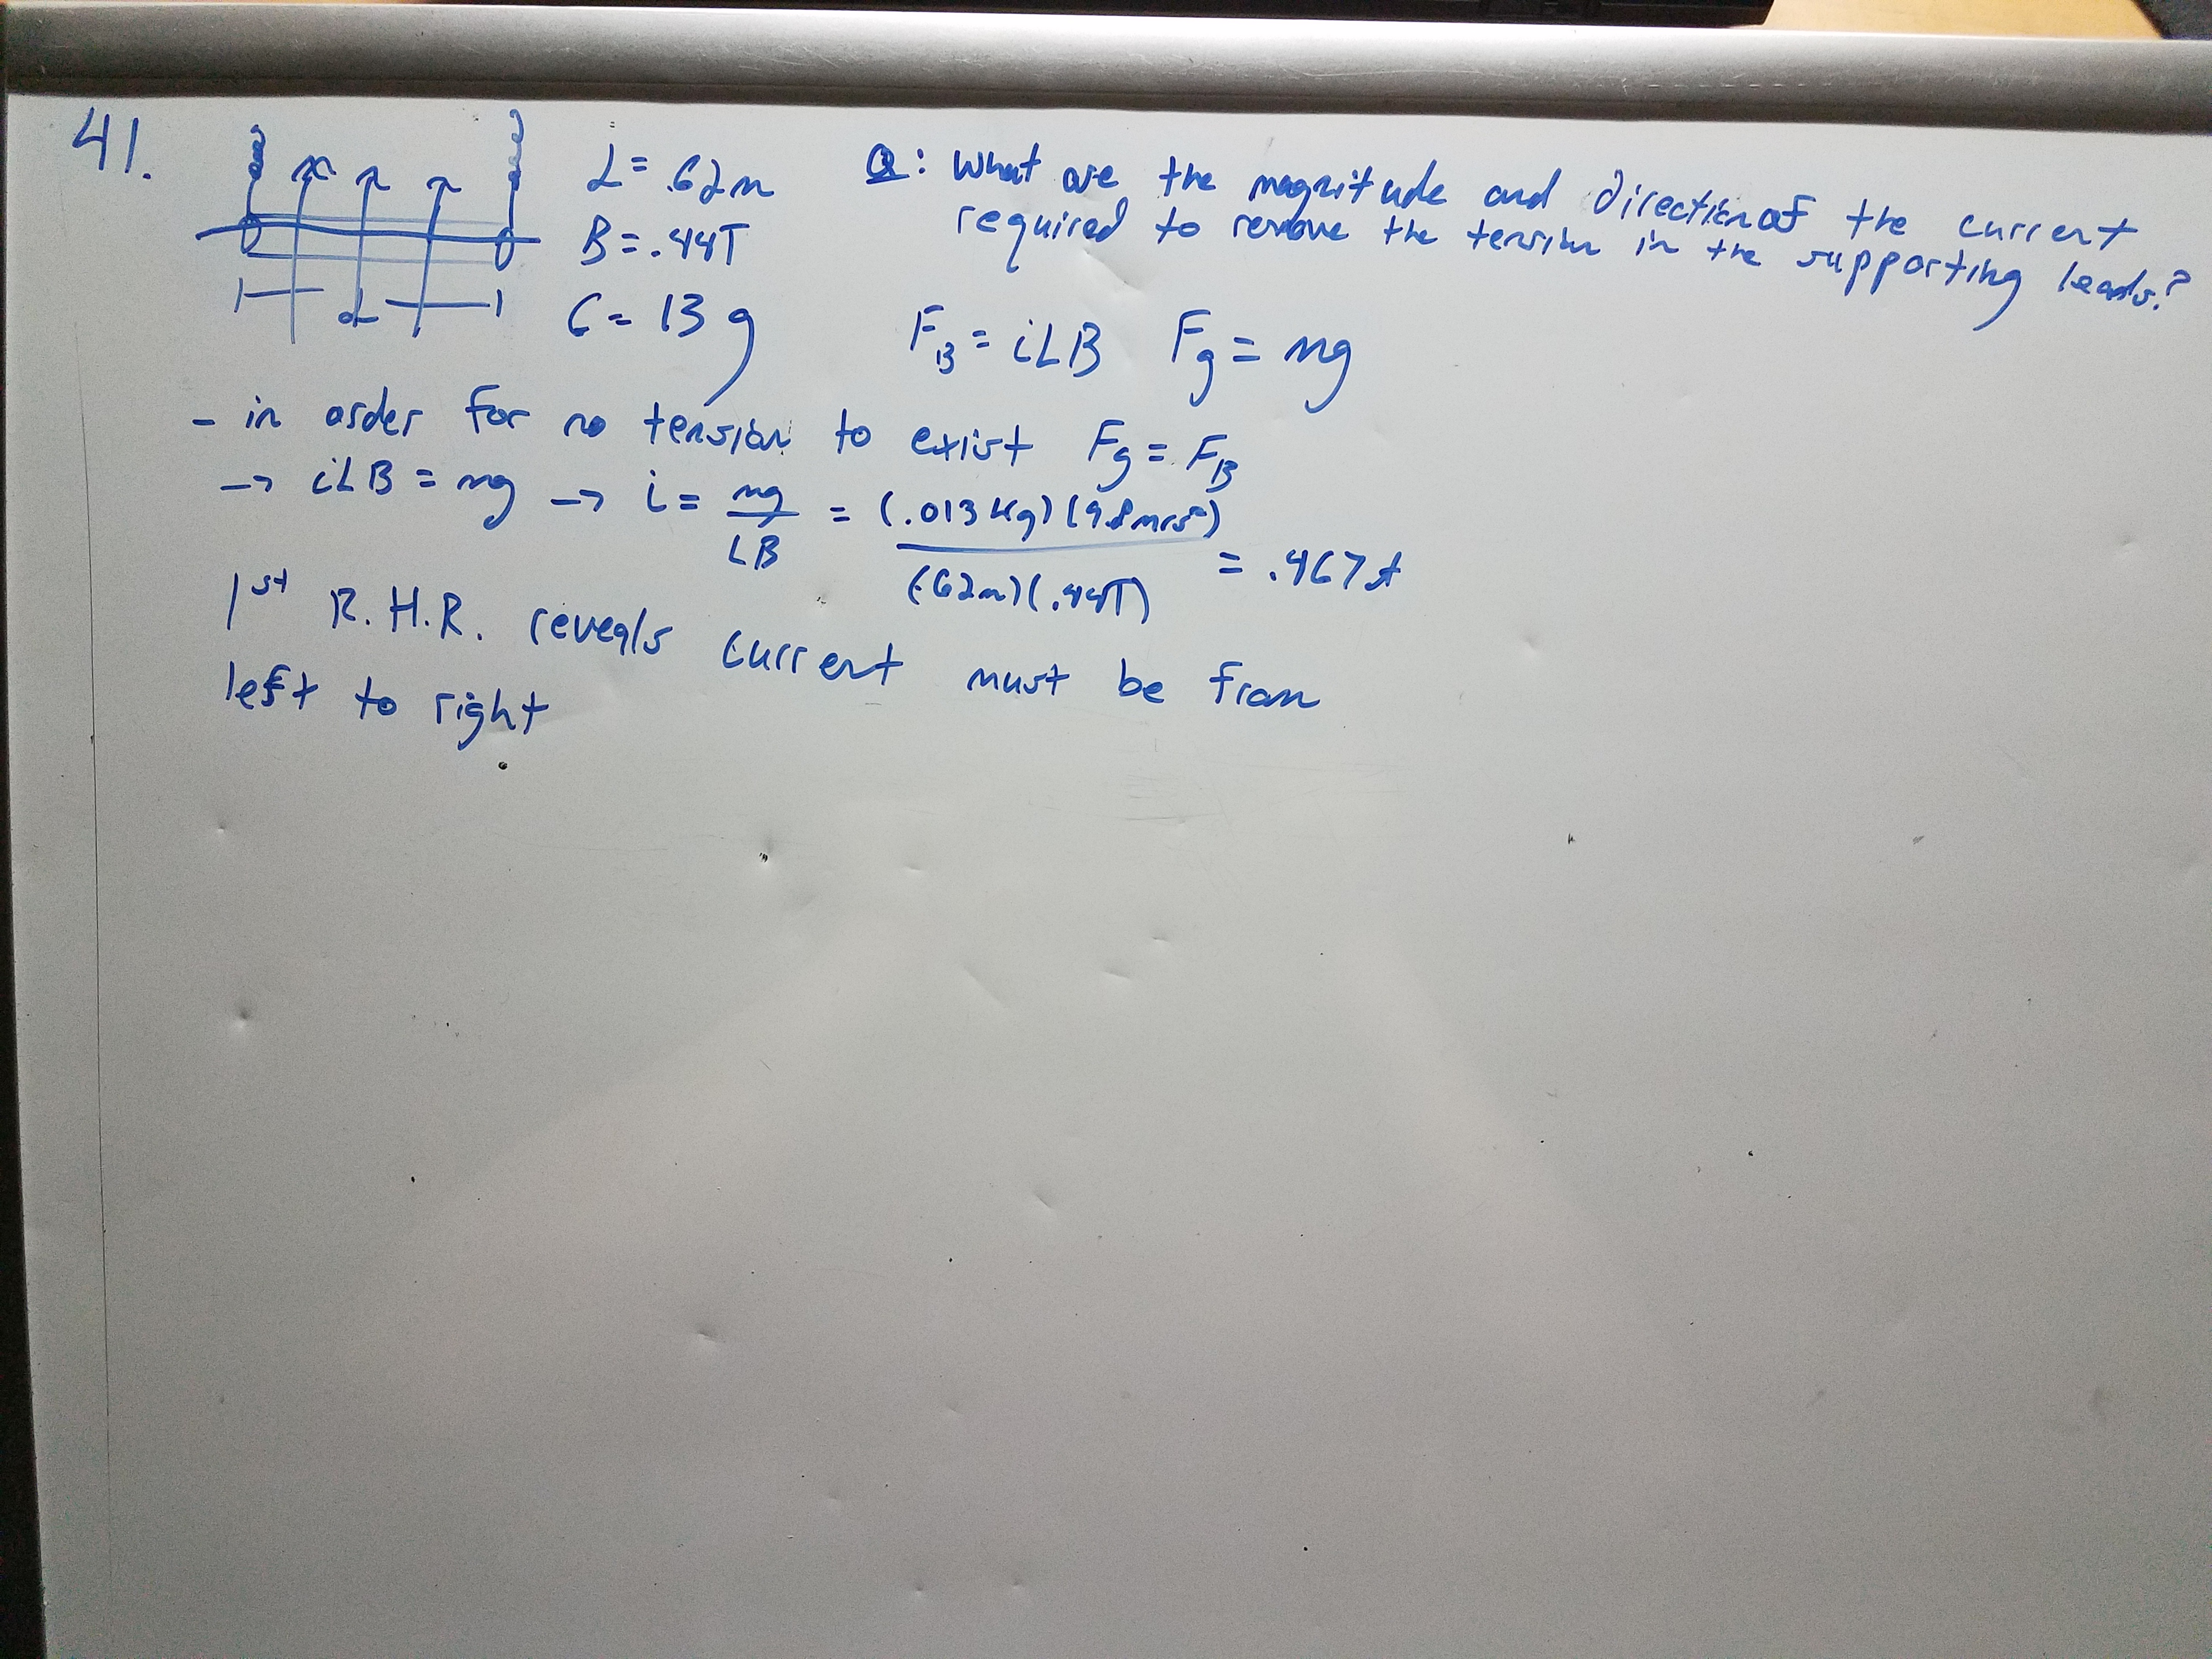 41.
L = .62m
B = .44T
G = 13 g
L
Q: What are the magnitude and direction of the current
required to remove the tension in the supporting leads?
F_B = iLB F_g = mg
- in order for no tension to exist F_g = F_B
→ iLB = mg → i = mg/LB = (.013 kg)(9.8 m/s²)/(.62m)(.44T) = .467A
1st R.H.R. reveals current must be from
left to right